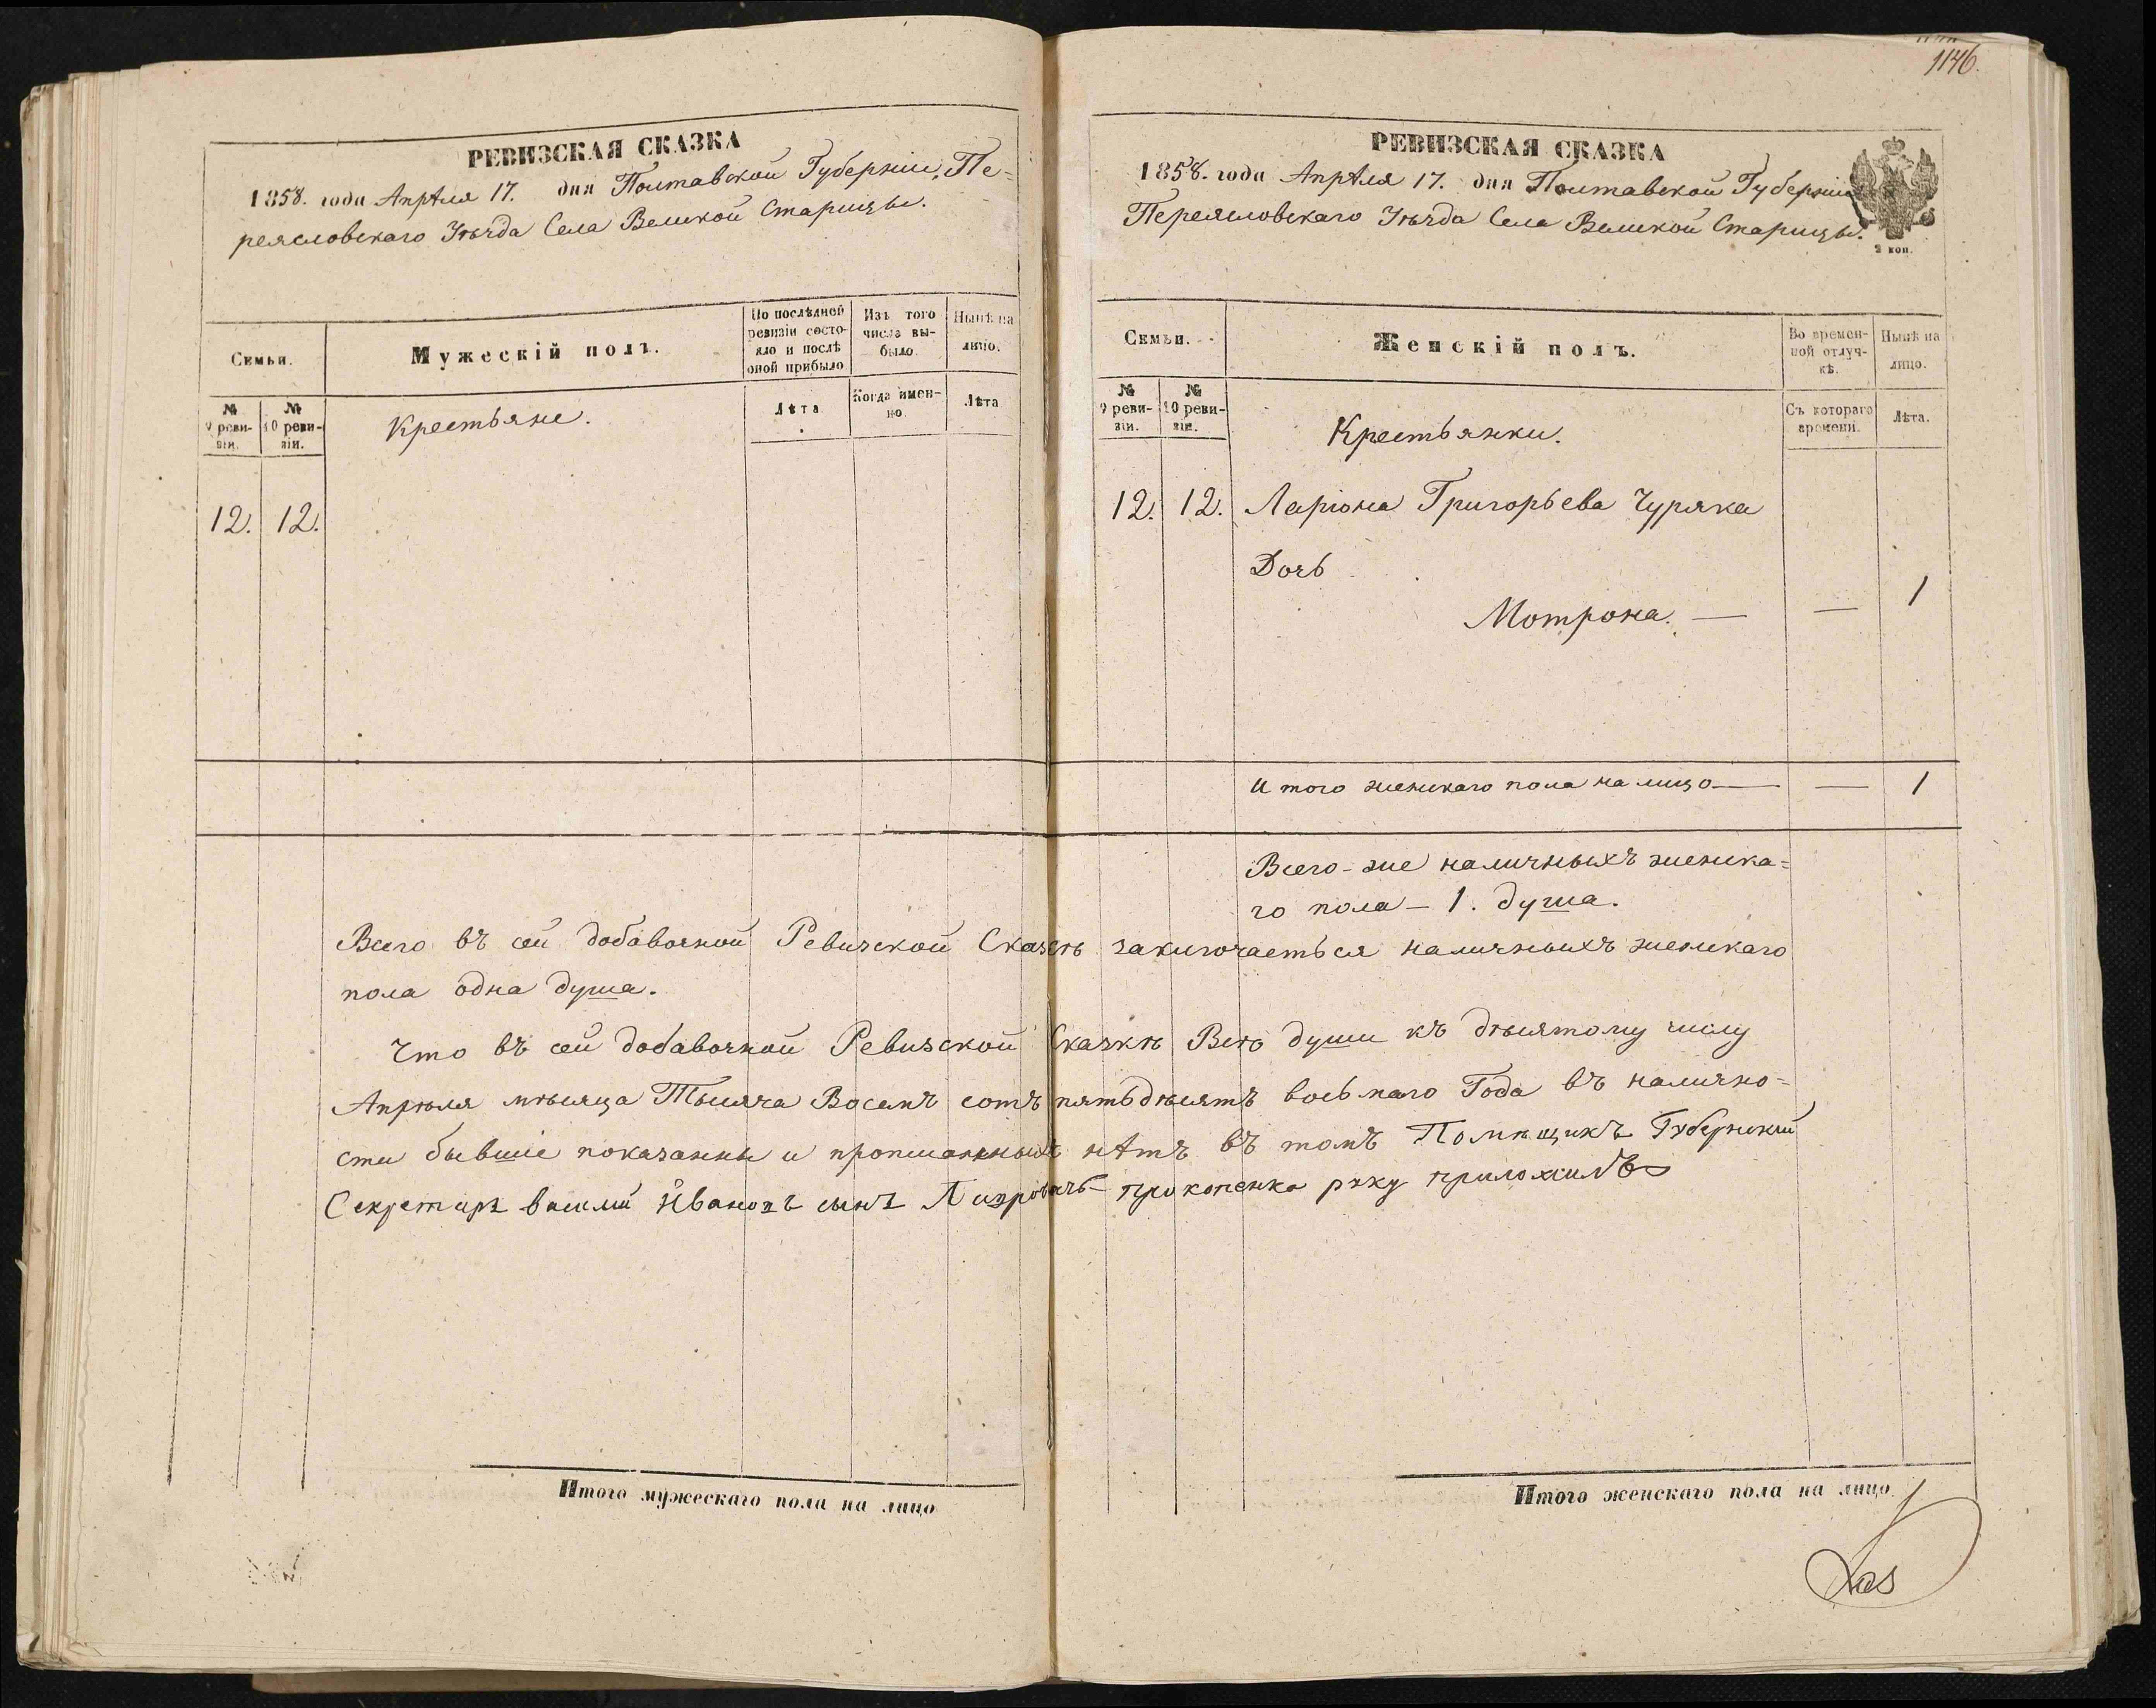 1146.
РЕВИЗСКАЯ СКАЗКА
1858. года Апрѣля 17. дня Полтавской Губерніи, Пе=
реясловскаго Уѣзда Села Великой Старицы.
Семьи.
Мужескій полъ.
По послѣдней
ревизіи состо-
яло и послѣ
оной прибыло
Изъ того
числа вы-
было
Нынѣ на
лицо.
№
9 реви-
зіи.
№
10 реви-
зіи.
Крестьяне.
Лѣта
Когда имен-
но.
Лѣта
12. 12.
РЕВИЗСКАЯ СКАЗКА
1858. года Апрѣля 17. дня Полтавской Губерніи
Переясловскаго Уѣзда Села Великой Старицы.
2 коп.
Семьи.
Женскій полъ.
Во времен-
ной отлуч-
кѣ.
Нынѣ на
лицо.
№
9 реви-
зіи.
№
10 реви-
зіи.
Крестьянки.
Съ котораго
времени.
Лѣта.
12. 12. Ларіона Григорьева Чуряка
Дочь
Мотрона. — — 1
Итого женскаго пола на лицо — — 1
Всего-же наличныхъ женска=
го пола — 1. душа.
Всего въ сей добавочной Ревизской Сказкѣ заключаеться наличныхъ женскаго
пола одна душа.
Что въ сей добавочной Ревизской Сказкѣ Всѣ души къ дѣсятому числу
Апрѣля мѣсяца Тысяча Восемъ сотъ пятьдѣсятъ восьмаго Года въ налично=
сти бывшіе показанны и прописанныхъ нѣтъ въ томъ Помѣщикъ Губернскій
Секретарь василій Ивановъ сынъ прокопенко руку приложилъ
Итого мужескаго пола на лицо
Итого женскаго пола на лицо